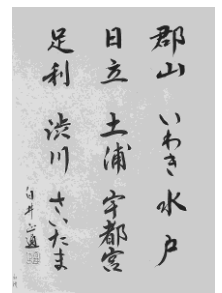 郡山 いわき 水戸
日立 土浦 宇都宮
足利 渋川 さいたま